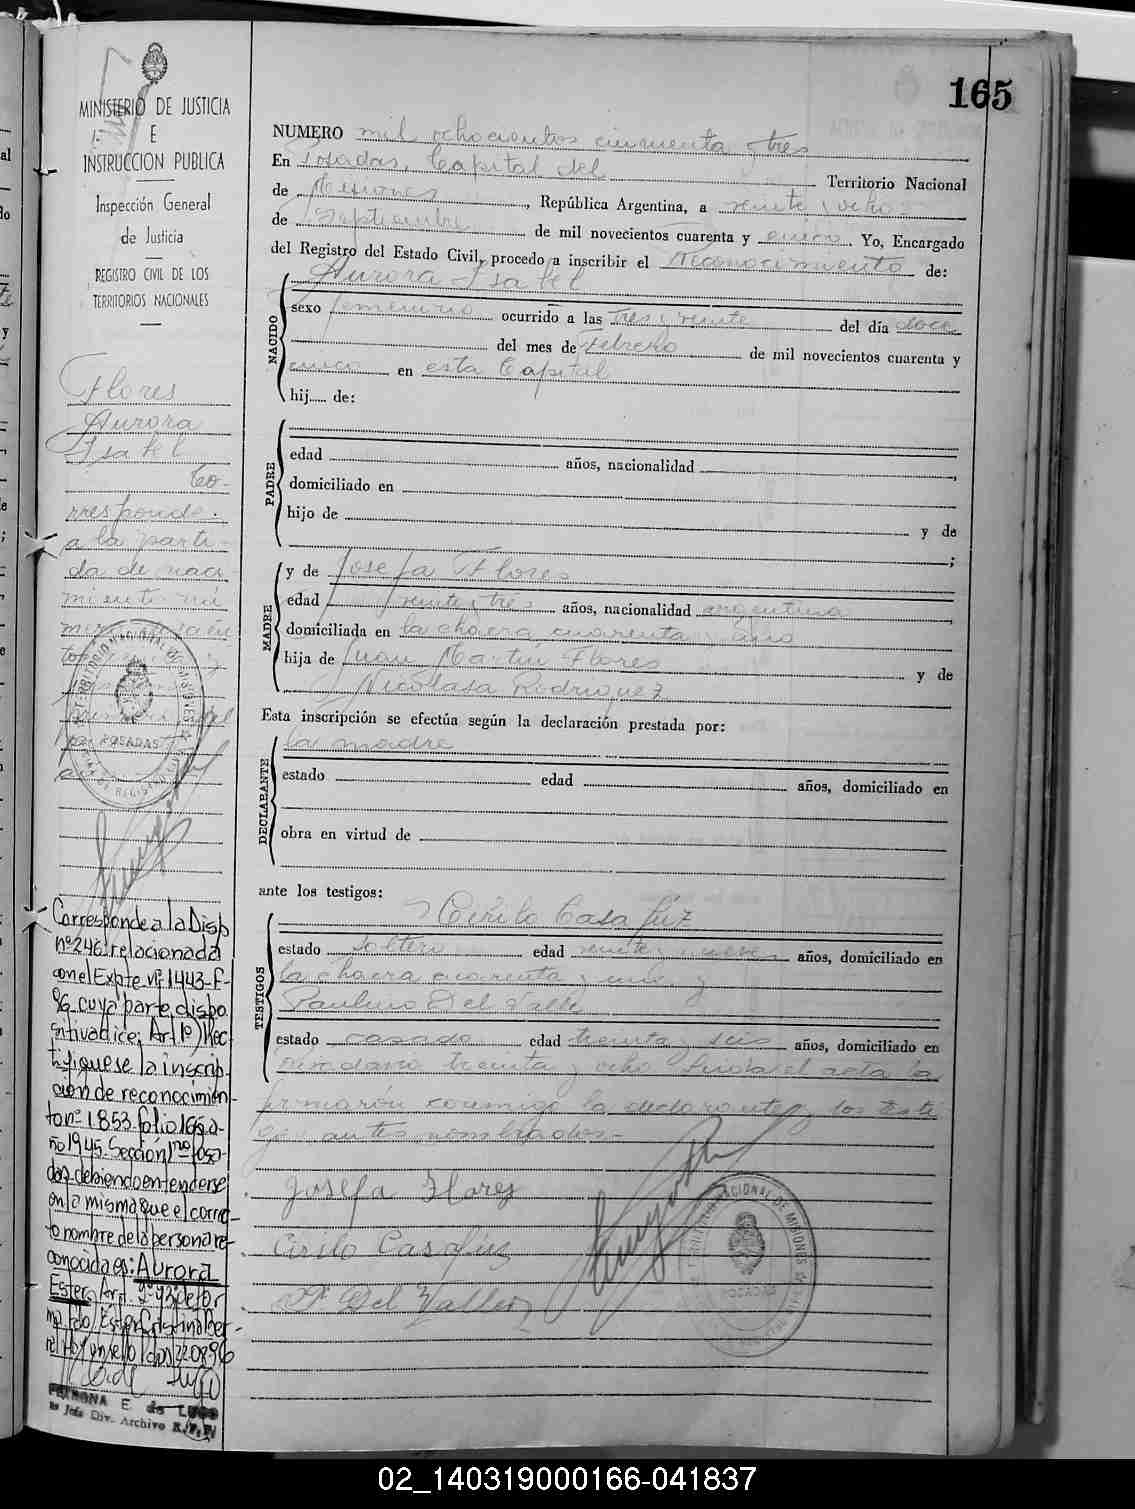 165
MINISTERIO DE JUSTICIA
E
INSTRUCCION PUBLICA
Inspección General
de Justicia
REGISTRO CIVIL DE LOS
TERRITORIOS NACIONALES
Flores
Aurora
Isabel
Co-
rresponde
a la parti-
da de naci
miento nú
POSADAS
Corresponde a la Disp
nº 246 relacionada
con el Expte nº 1443-F-
96 cuya parte dispo
sitiva dice: Art. 1º) Rec
tifiquese la inscrip
ción de reconocimien
to nº 1853 folio 165 a-
ño 1945 Sección 1ro Posa-
das debiendo entenderse
en la misma que el correc-
to nombre de la persona re-
conocida es: Aurora
Ester Art. 2º de for
ma fdo Ester Cristina
E. de LUGO
Jefe Div. Archivo
NUMERO mil ochocientos cincuenta y tres
En Posadas, Capital del Territorio Nacional
de Misiones, República Argentina, a veinte y ocho
de Septiembre de mil novecientos cuarenta y cinco Yo, Encargado
del Registro del Estado Civil, procedo a inscribir el Reconocimiento de:
Aurora Isabel
NACIDO
sexo femenino ocurrido a las tres y veinte del día doce
del mes de Febrero de mil novecientos cuarenta y
cinco en esta Capital
hij..... de:
PADRE
edad años, nacionalidad
domiciliado en
hijo de y de
;
MADRE
y de Josefa Flores
edad veinte y tres años, nacionalidad argentina
domiciliada en la chacra cuarenta y uno
hija de Juan Martín Flores y de
Nicolasa Rodriguez
Esta inscripción se efectúa según la declaración prestada por:
la madre
DECLARANTE
estado edad años, domiciliado en
obra en virtud de
ante los testigos:
Cirilo Casafúz
TESTIGOS
estado soltero edad veinte y nueve años, domiciliado en
la chacra cuarenta y uno y
Paulino Del Valle
estado casado edad treinta y seis años, domiciliado en
Rivadavia treinta y ocho Leída el acta la
firmarón conmigo la declarante y los testi
gos antes nombrados.-
Josefa Flores
Cirilo Casafúz
P. Del Valle
02_140319000166-041837